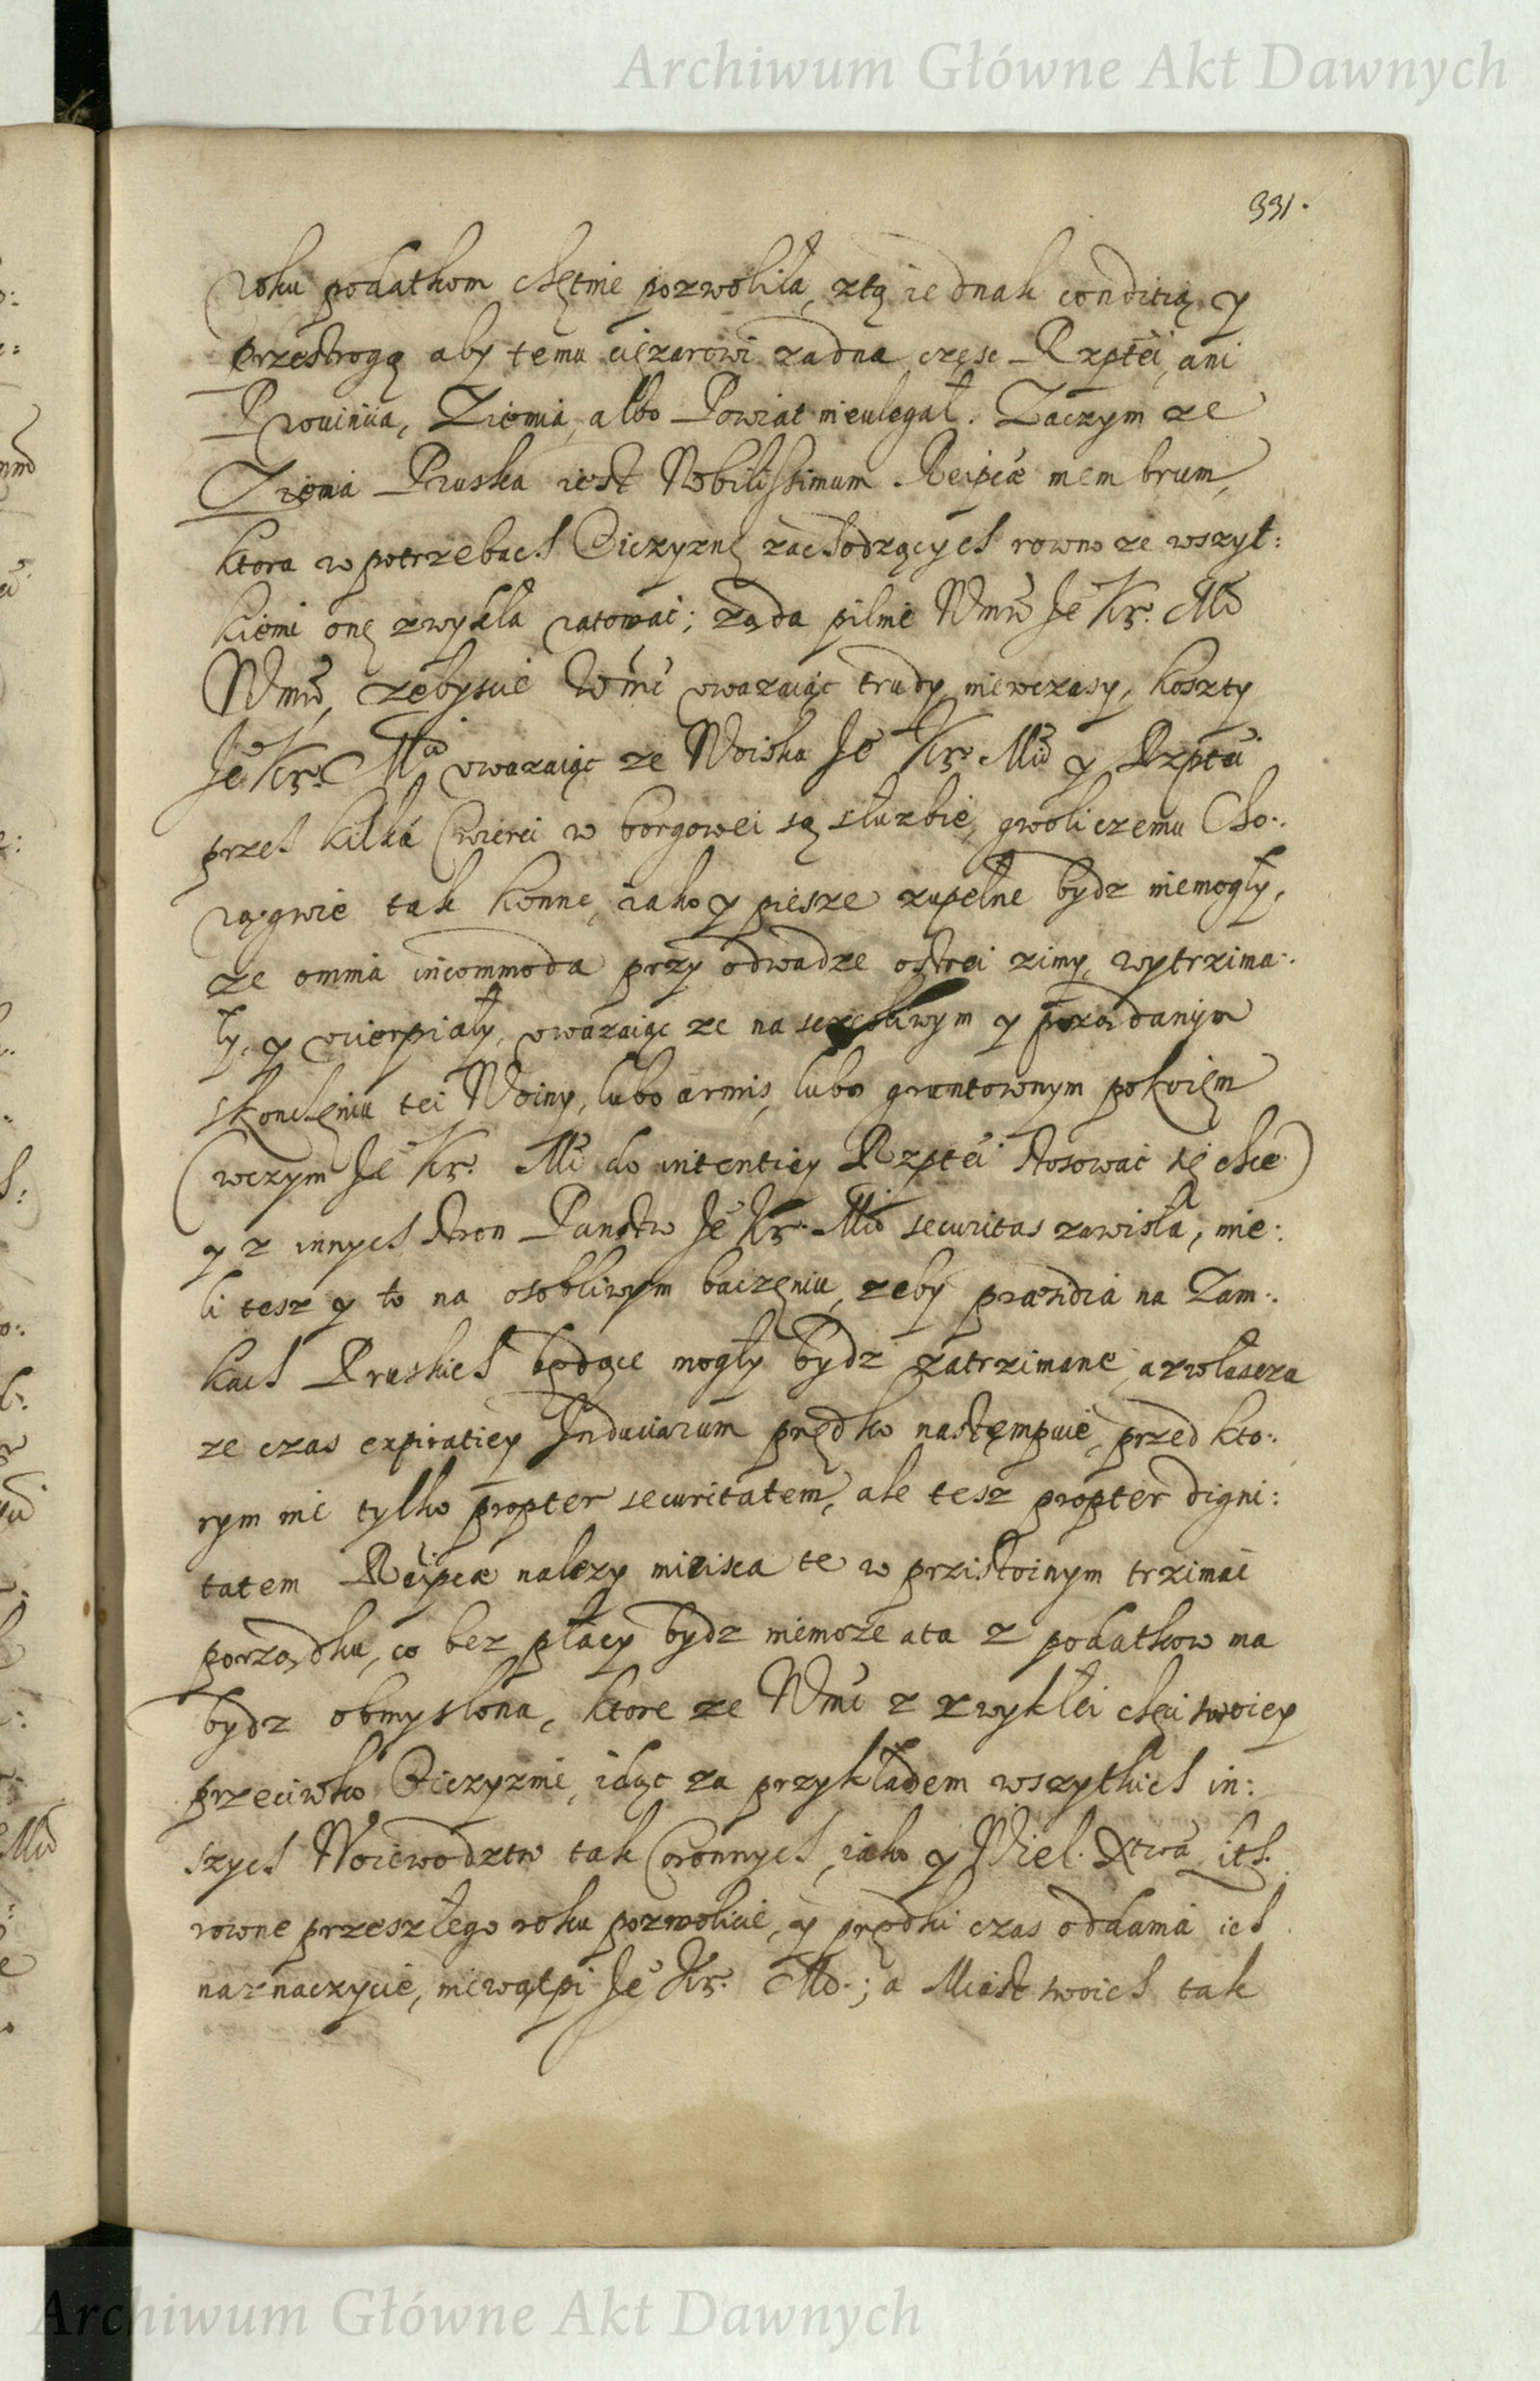 Archiwum Główne Akt Dawnych
331.
roku podatkom chętnie pozwoliła, ztą iednak conditią y
przestrogą aby temu cięzarowi zadna częsc Rzptei, ani
Prouincia, Ziemia, albo Powiat nieulegał. Zaczym ze
Ziemia Pruska iest Nobilissimum Reipcæ membrum,
ktora w potrzebach Oiczyznę zachodzących rowno ze wszyt:
kiemi onę zwykła ratowac; ząda pilnie Wmċ Je Kr. Mċ
Wmċ, zebyscie Wmċ uwazaiąc trudy, niewczasy, koszty
Je Kr. Mci uwazaiąc ze Woiska Je Kr. Mci y Rzptei
przes kilka Cwierci w borgowei są służbie, gwoli czemu Cho:
rągwie tak konne, iako y piesze zupełne bydz niemogły,
ze omnia incommoda przy odwadze ostrei zimy, wytrzima:
ły, y ucierpiały, uwazaiąc ze na sczesliwym y pożądanym
skonczeniu tei Woiny, lubo armis, lubo gruntownym pokoięm
(wczym Je Kr. Mċ do intentiey Rzptei stosowac się chce)
y z innych stron Panstw Je Kr. Mci securitas zawisła, mie:
li tesz y to na osobliwym baczęniu, zeby præsidia na Zam:
kach Pruskich będące mogły bydz zatrzimane, azwłascza
ze czas expiratiey Induciarum prędko nastęmpuie, przed kto:
rym nie tylko propter securitatem, ale tesz propter digni:
tatem Reipcæ nalezy mieisca te w przistoinym trzimac
porządku, co bez płacy bydz niemoze ata z podatkow ma
bydz obmyslona, ktore ze Wmċ z zwykłei chęci swoiey
przeciwko Oiczyznie, idąc za przykładem wszytkich in:
szych Woiewodztw tak Coronnych, iako y Wiel. Xtwa Lit.
rowne przeszłego roku pozwolicie, y prędki czas oddania ich
naznaczycie, niewątpi Je Kr. Mċ.; a Miast swoich tak
Archiwum Główne Akt Dawnych